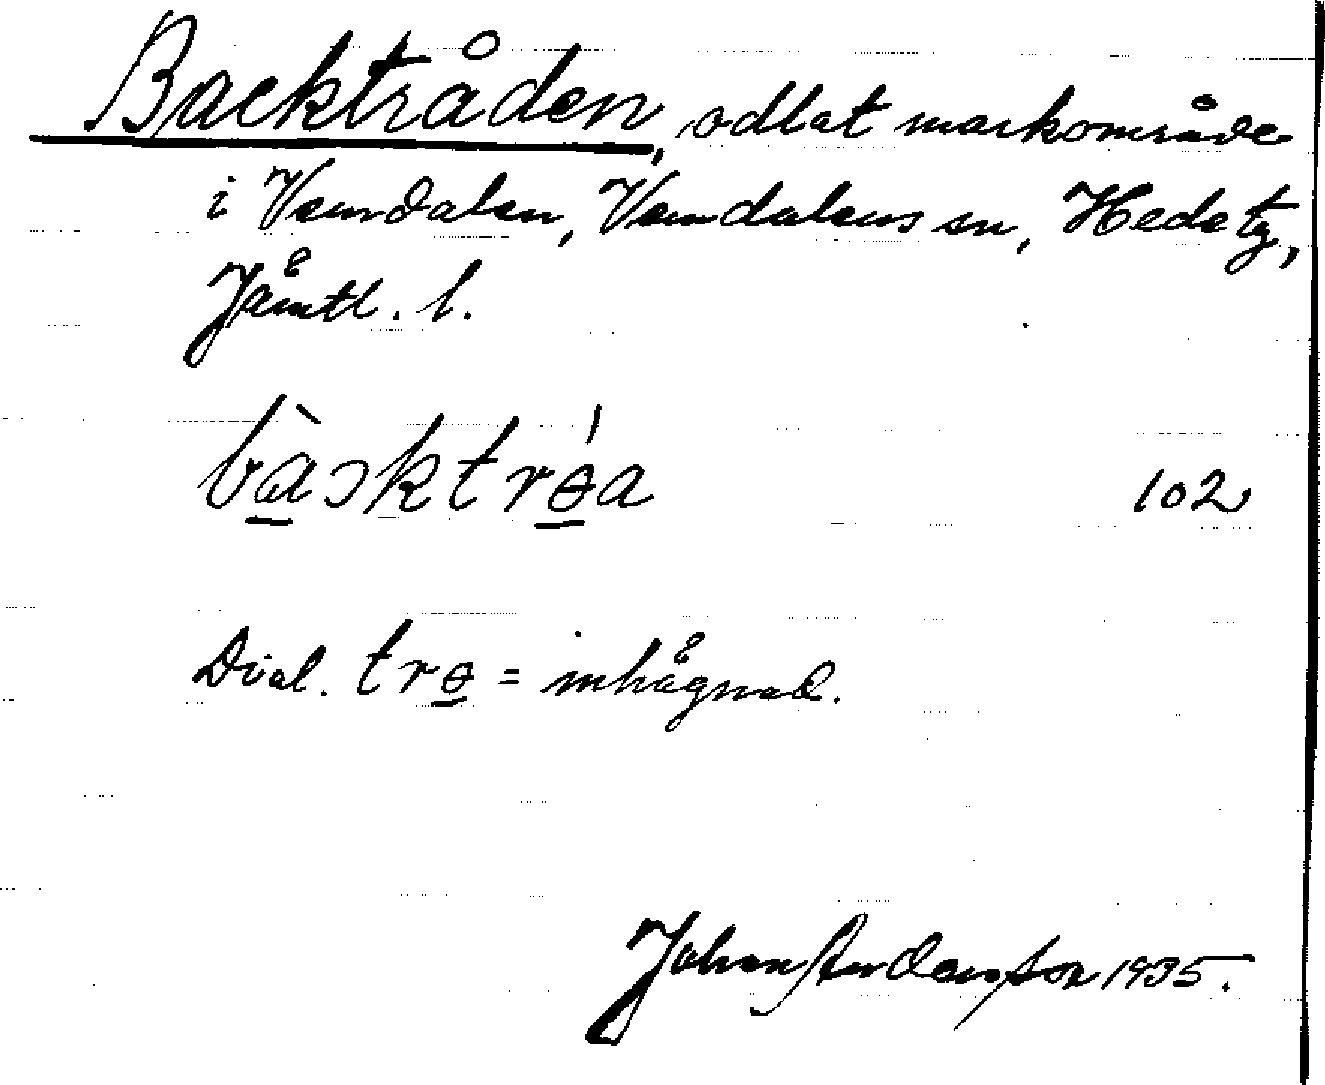 Backtråden, odlat markområde
i Vemdalen, Vemdalens sn, Hede tg,
Jämtl. l.
bàɔktrɵ́a 102
Dial. trɵ = inhägnad.
Johan Andersson 1935.